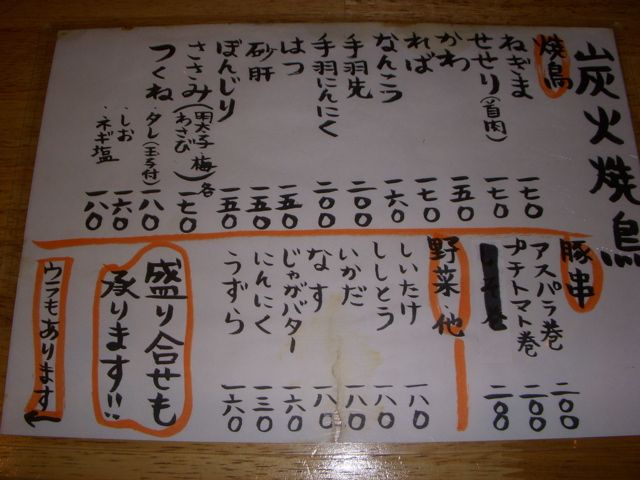 炭火焼鳥
焼鳥
ねぎま 一七〇
せせり(首肉) 一七〇
かわ 一五〇
ればー 一七〇
なんこう 一六〇
手羽先 二〇〇
手羽にんにく 二〇〇
はつ 一五〇
砂肝 一五〇
ぼんじり 一五〇
ささみ(明太子・梅・わさび)各 一七〇
つくね・タレ(玉子付) 一八〇
・しお 一六〇
・ネギ塩 一八〇
豚串
アスパラ巻 二〇〇
プチトマト巻 二〇〇
二〇〇
野菜・他
しいたけ 一八〇
ししとう 一八〇
いかだ 一八〇
なす 一八〇
じゃがバター 一六〇
にんにく 一三〇
うずら 一六〇
盛り合せも
承ります!!
ウラもあります